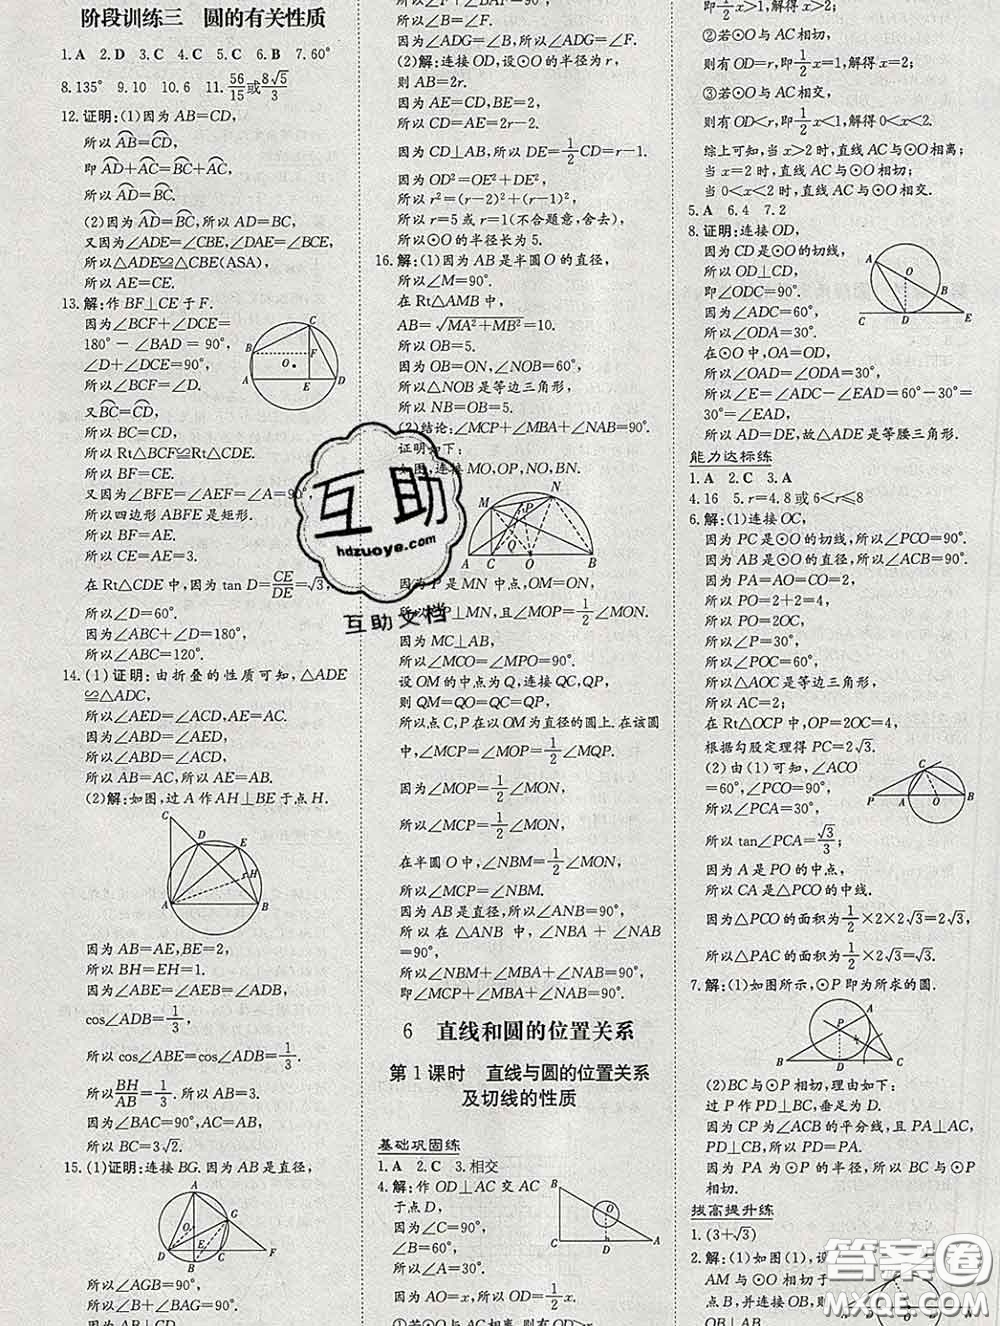 阶段训练三　圆的有关性质
1.A　2.D　3.C　4.C　5.C　6.B　7.60°
8.135°　9.10　10.6　11.56/15或8√5/3
12.证明:(1)因为AB=CD,
所以AB⌒=CD⌒,
即AD⌒+AC⌒=BC⌒+AC⌒,
所以AD⌒=BC⌒.
(2)因为AD⌒=BC⌒,所以AD=BC,
又因为∠ADE=∠CBE,∠DAE=∠BCE,
所以△ADE≌△CBE(ASA),
所以AE=CE.
13.解:作BF⊥CE于F.
因为∠BCF+∠DCE=
180°-∠BAD=90°,
∠D+∠DCE=90°,
所以∠BCF=∠D.
又BC⌒=CD⌒,
所以BC=CD,
所以Rt△BCF≌Rt△CDE.
所以BF=CE.
又∠BFE=∠AEF=∠A=90°,
所以四边形ABFE是矩形.
所以BF=AE.
所以CE=AE=3.
在Rt△CDE中,因为tan D=CE/DE=√3,
所以∠D=60°.
因为∠ABC+∠D=180°,
所以∠ABC=120°.
14.(1)证明:由折叠的性质可知,△ADE
≌△ADC,
所以∠AED=∠ACD,AE=AC.
因为∠ABD=∠AED,
所以∠ABD=∠ACD,
所以AB=AC,所以AE=AB.
(2)解:如图,过A作AH⊥BE于点H.
C
D
E
H
A
B
因为AB=AE,BE=2,
所以BH=EH=1.
因为∠ABE=∠AEB=∠ADB,
cos∠ADB=1/3,
所以cos∠ABE=cos∠ADB=1/3.
所以BH/AB=1/3.
因为∠BAC=90°,AC=AB,
所以BC=3√2.
15.(1)证明:连接BG.因为AB是直径,
所以∠AGB=90°,
因为∠ADG=∠B,所以∠ADG=∠F.
(2)解:连接OD,设⊙O的半径为r,
则AB=2r.
因为AE=CD,BE=2,
所以AE=CD=2r-2,
因为CD⊥AB,所以DE=1/2CD=r-1.
因为OD²=OE²+DE²,
所以r²=(r-2)²+(r-1)²,
所以r=5或r=1(不合题意,舍去),
所以⊙O的半径长为5.
16.解:(1)因为AB是半圆O的直径,
所以∠M=90°.
在Rt△AMB中,
AB=√(MA²+MB²)=10.
所以OB=5.
因为OB=ON,∠NOB=60°,
所以△NOB是等边三角形,
所以NB=OB=5.
(2)结论:∠MCP+∠MBA+∠NBA=90°.
证明如下:
如图,连接MO,OP,NO,BN.
因为P是MN中点,OM=ON,
所以OP⊥MN,且∠MOP=1/2∠MON,
因为MC⊥AB,
所以∠MCO=∠MPO=90°.
设OM的中点为Q,连接QC,QP,
则QM=QO=QC=QP,
所以点C,P在以OM为直径的圆上.在该圆
中,∠MCP=∠MOP=1/2∠MQP.
因为∠MOP=1/2∠MON,
所以∠MCP=1/2∠MON,
在半圆O中,∠NBM=1/2∠MON,
所以∠MCP=∠NBM.
因为AB是直径,所以∠ANB=90°,
所以在△ANB中,∠NBA+∠NAB
=90°,
所以∠NBM+∠MBA+∠NAB=90°,
即∠MCP+∠MBA+∠NAB=90°.
6　直线和圆的位置关系
第1课时　直线与圆的位置关系
及切线的性质
基础巩固练
1.A　2.C　3.相交
4.解:作OD⊥AC交AC
于点D,
因为∠C=90°,
∠B=60°,
所以∠A=30°,
因为AO=x,所以OD=1/2x.
即1/2x>1,解得x>2;
②若⊙O与AC相切,
则有OD=r,即1/2x=1,解得x=2;
③若⊙O与AC相交,
则有OD<r,即1/2x<1,解得x<2.
综上可知,当x>2时,直线AC与⊙O相离;
当x=2时,直线AC与⊙O相切;
当0<x<2时,直线AC与⊙O相交.
5.A　6.4　7.2
8.证明:连接OD,
因为CD是⊙O的切线,
所以OD⊥CD,
因为∠ADC=60°,
所以∠ODA=30°.
在⊙O中,OA=OD,
所以∠OAD=∠ODA=30°,
所以∠E=∠ADC-∠EAD=60°-30°=
30°=∠EAD,
所以AD=DE,故△ADE是等腰三角形.
能力达标练
1.A　2.C　3.A
4.16　5.r=4.8或6<r≤8
6.解:(1)连接OC,
因为PC是⊙O的切线,所以∠PCO=90°.
因为AB是⊙O的直径,所以∠ACB=90°.
因为PA=AO=2,
所以PO=2+2=4,
所以PO=2OC,
所以∠P=30°,
所以∠POC=60°,
所以△AOC是等边三角形,
所以AC=2;
在Rt△OCP中,OP=2OC=4,
根据勾股定理得PC=2√3.
(2)由(1)可知,∠ACO
=60°,∠PCO=90°,
所以∠PCA=30°,
所以tan∠PCA=√3/3.
因为A是PO的中点,
所以CA是△PCO的中线.
因为△PCO的面积为1/2×2×2√3=2√3,
所以△PAC的面积为1/2×2√3=√3.
7.解:(1)如图所示,⊙P为所求的圆.
(2)BC与⊙P相切,理由如下:
过P作PD⊥BC,垂足为D.
因为CP为∠ACB的平分线,且PA⊥CA,
PD⊥CB,所以PD=PA.
因为PA为⊙P的半径,所以BC与⊙P
相切.
拔高提升练
1.(3+√3)
2.解:(1)如图(1),设
AM与⊙O相切于
点B,连接OB,则
互助
hdzuoye.com
互助文档
答案圈
MXQE.COM